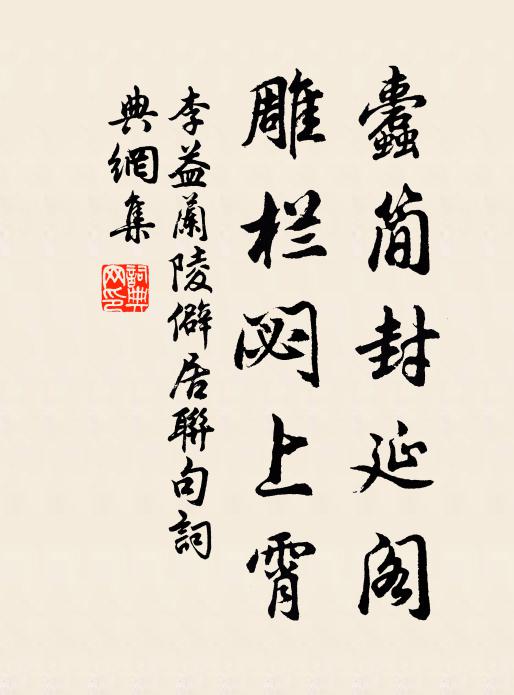 蠹简封延阁
雕栏閟上霄
李益蘭陵僻居聯句詞
典網集
詞典网印